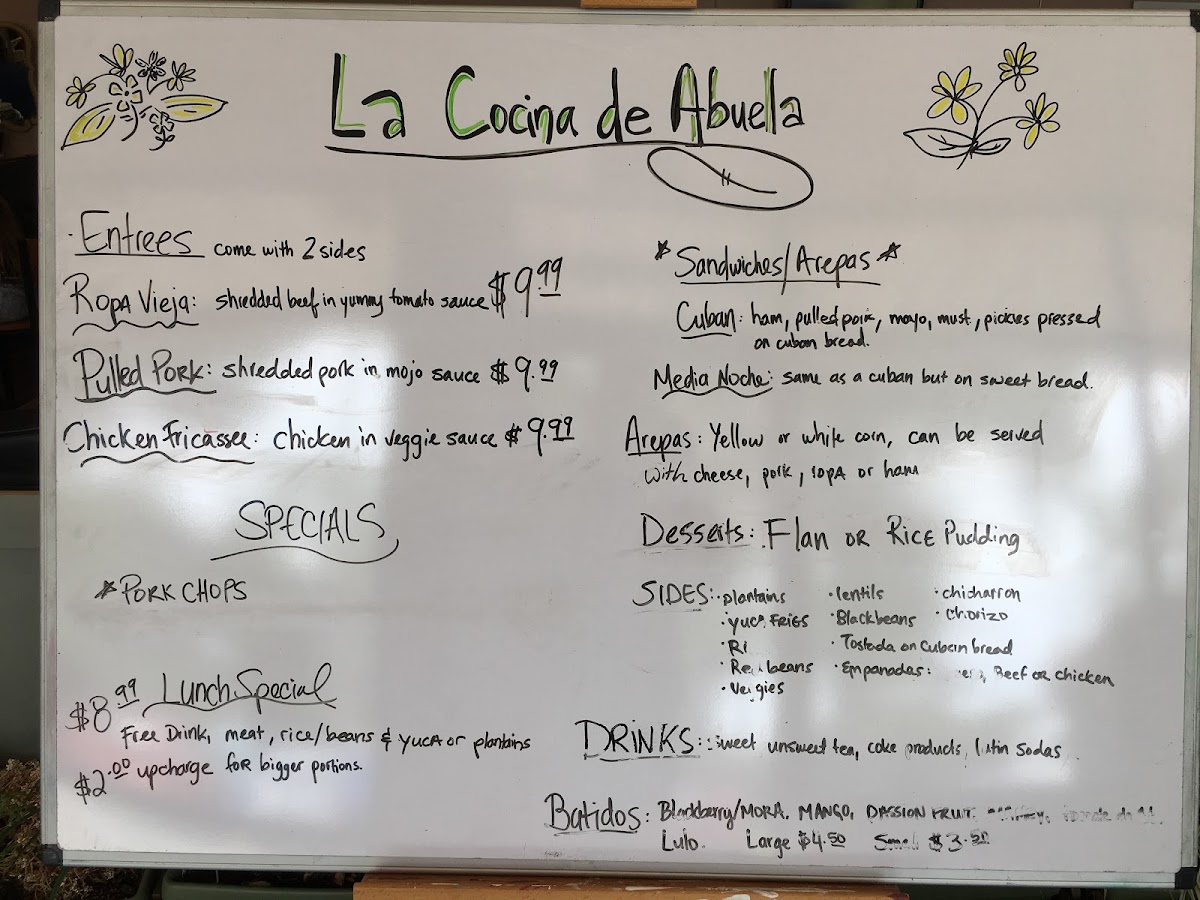 La Cocina de Abuela
Entrees come with 2 sides
Ropa Vieja: shredded beef in yummy tomato sauce $9.99
Pulled Pork: shredded pork in mojo sauce $9.99
Chicken Fricassee: chicken in veggie sauce $9.99
SPECIALS
*PORK CHOPS
$8.99 Lunch Special
Free Drink, meat, rice/beans & yuca or plantains
$2.00 upcharge for bigger portions.
*Sandwiches/Arepas*
Cuban: ham, pulled pork, mayo, must, pickles pressed
on cuban bread.
Media Noche: same as a cuban but on sweet bread.
Arepas: Yellow or white corn, can be served
with cheese, pork, ropa or ham
Desserts: Flan or Rice Pudding
SIDES: •plantains •lentils •chicharron
•yuca fries •Blackbeans •Chorizo
•Ri •Tostada on Cuban bread
•beans •Empanadas: Beef or chicken
•Veggies
DRINKS: sweet unsweet tea, coke products, latin sodas
Batidos: Blackberry/MORA, MANGO, PASSION FRUIT
Lulo. Large $4.50 Small $3.50